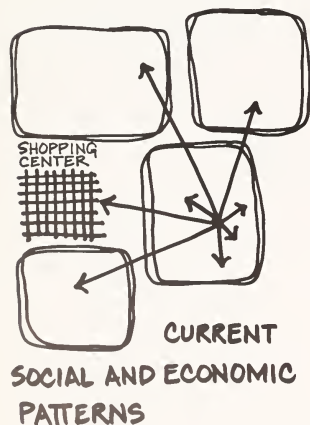 SHOPPING
CENTER
CURRENT
SOCIAL AND ECONOMIC
PATTERNS